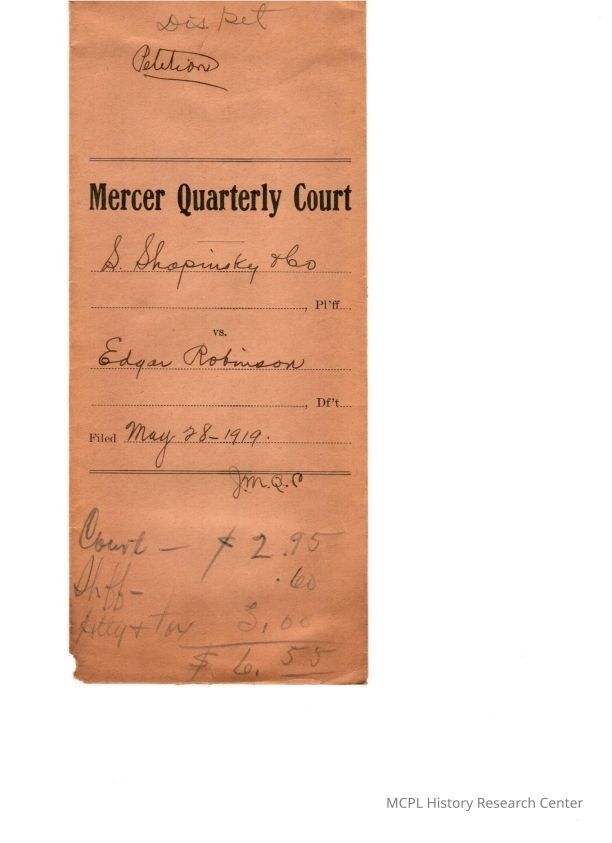 Dis. Pet
Petition
Mercer Quarterly Court
S. Shapinsky & Co
, Pl'ff.
vs.
Edgar Robinson
, Df't.
Filed May 28-1919.
Court — $ 2.95
Shff- .60
Atty & tax 3.00
$ 6.55
MCPL History Research Center